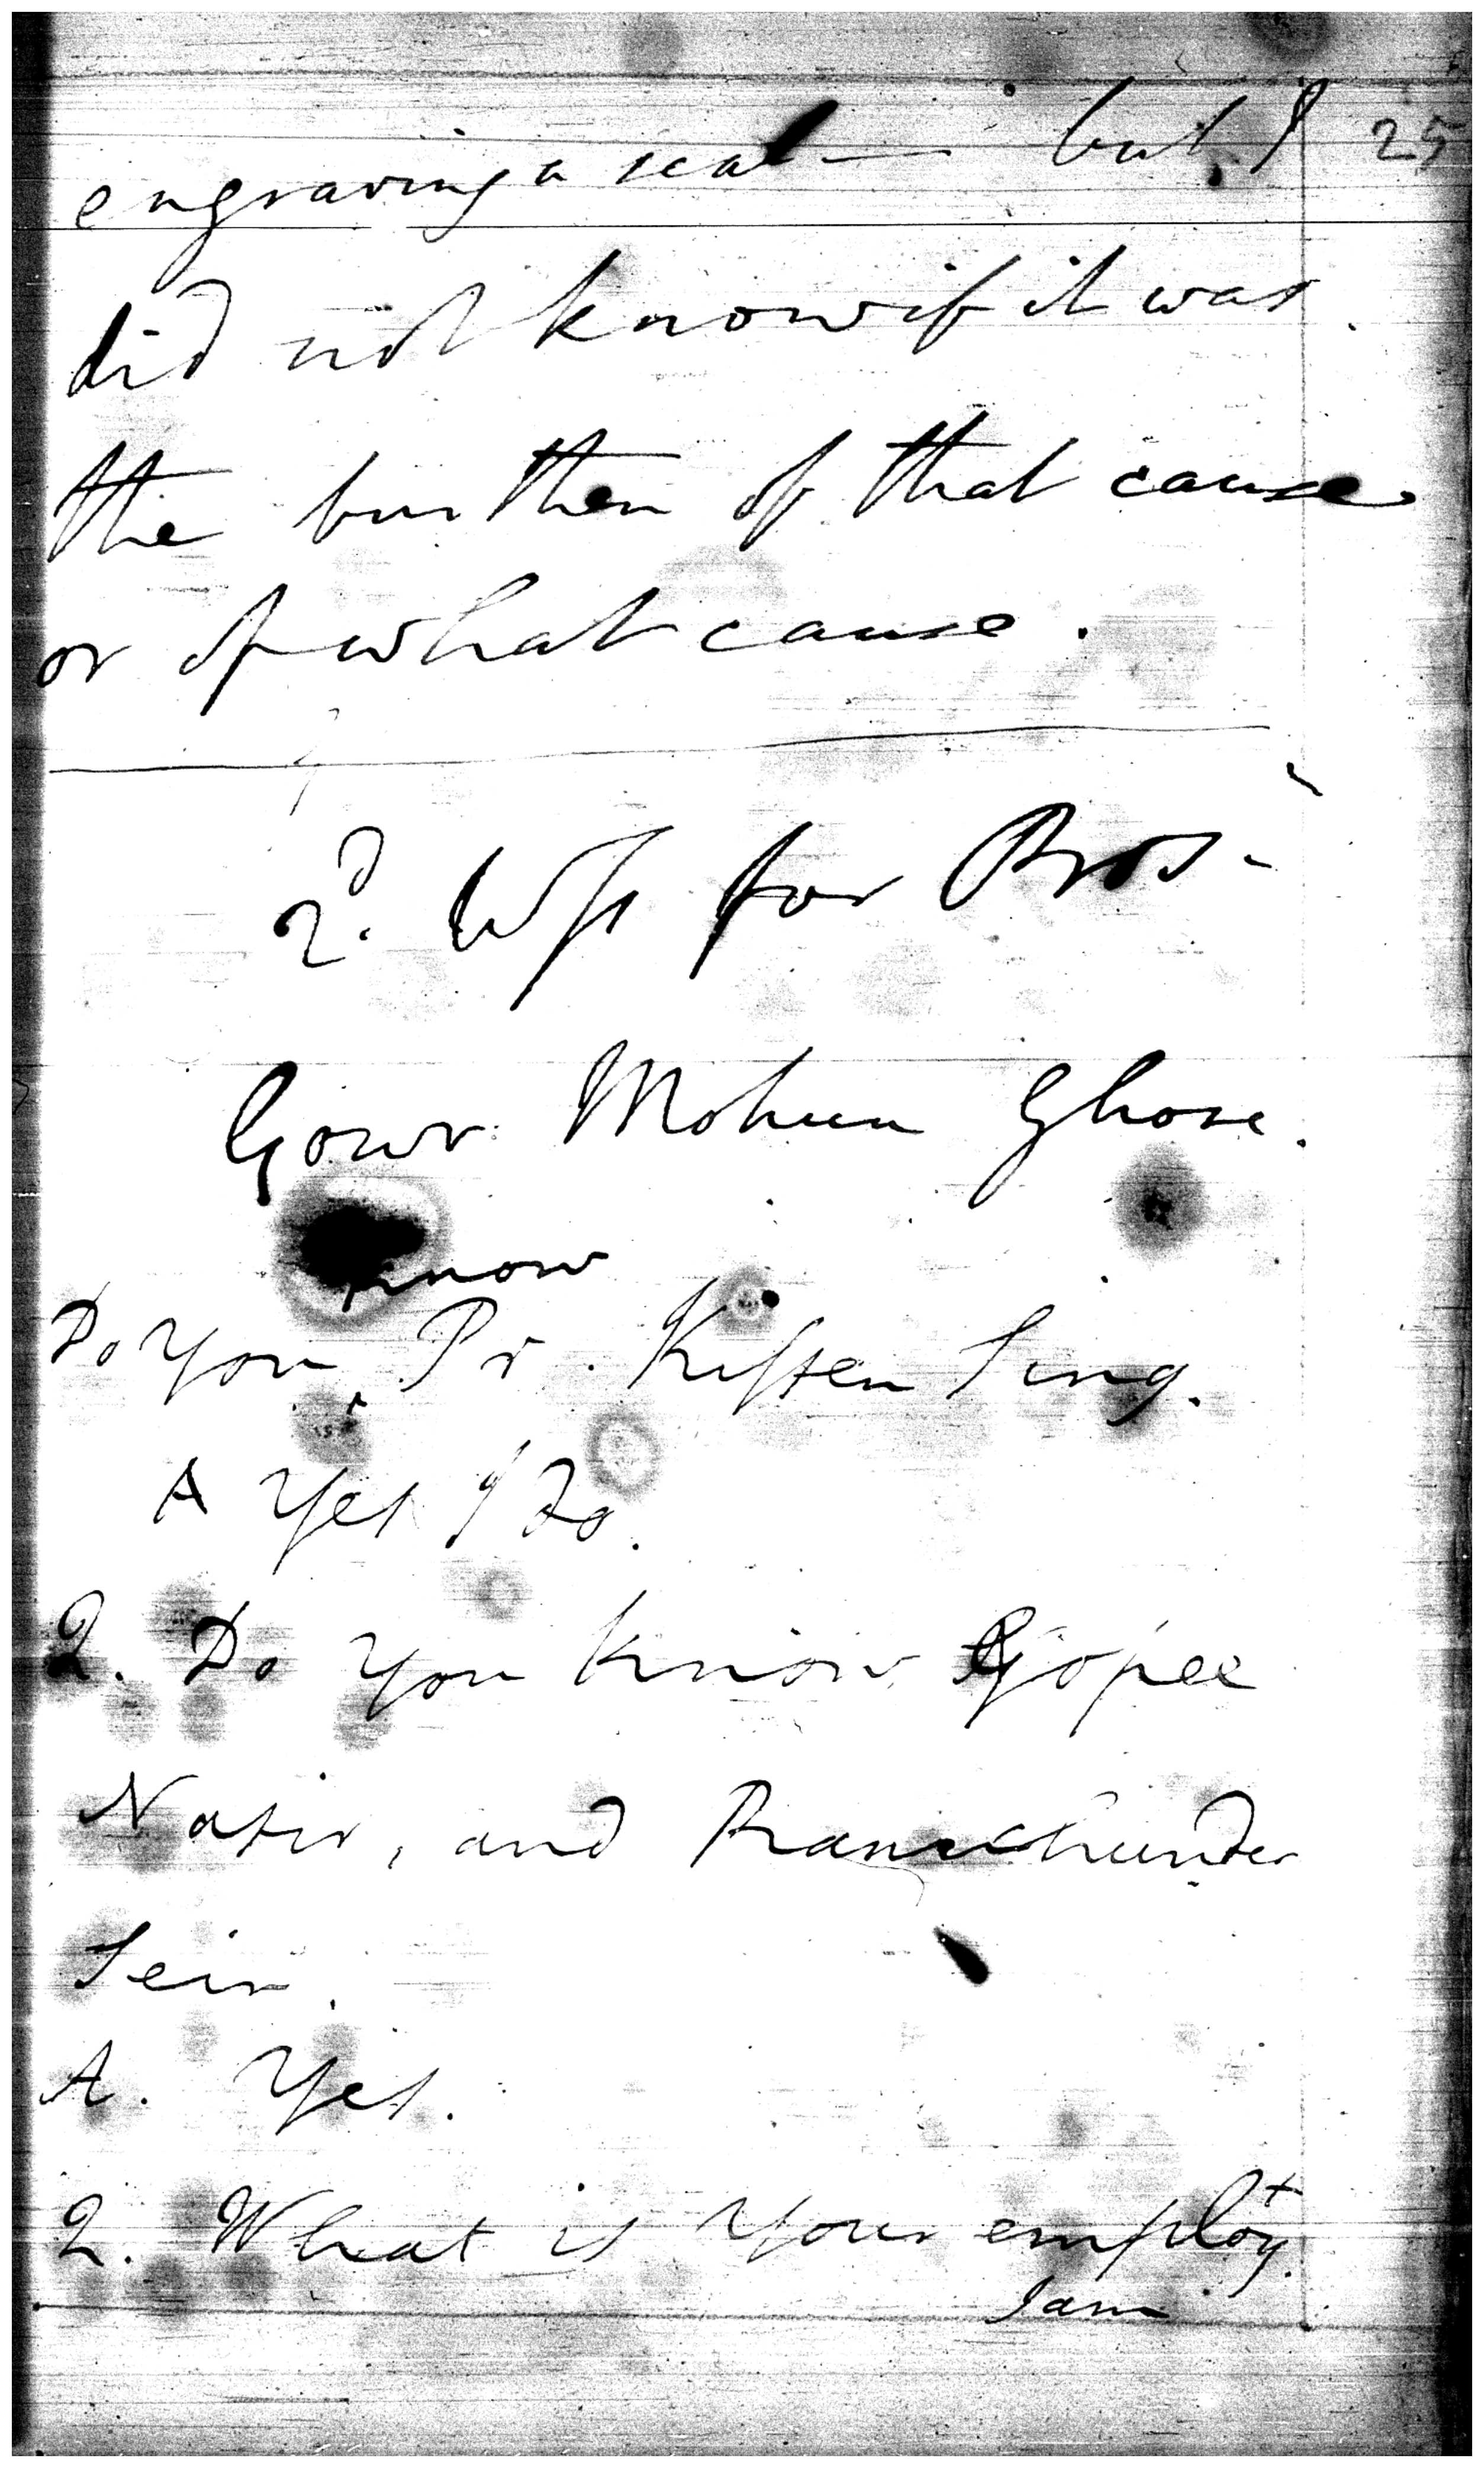 25
engraving a seal — but I
did not know if it was
the burthen of that cause
or of what cause.
2d. Wss for Pros-
Gowr Mohun Ghose.
know
Do you Pr. Kissen Sing.
A Yes I do.
Q. Do you know Gopee
Nazir, and Ramchunder
Sein.
A. Yes.
Q. What is your employt.
I am